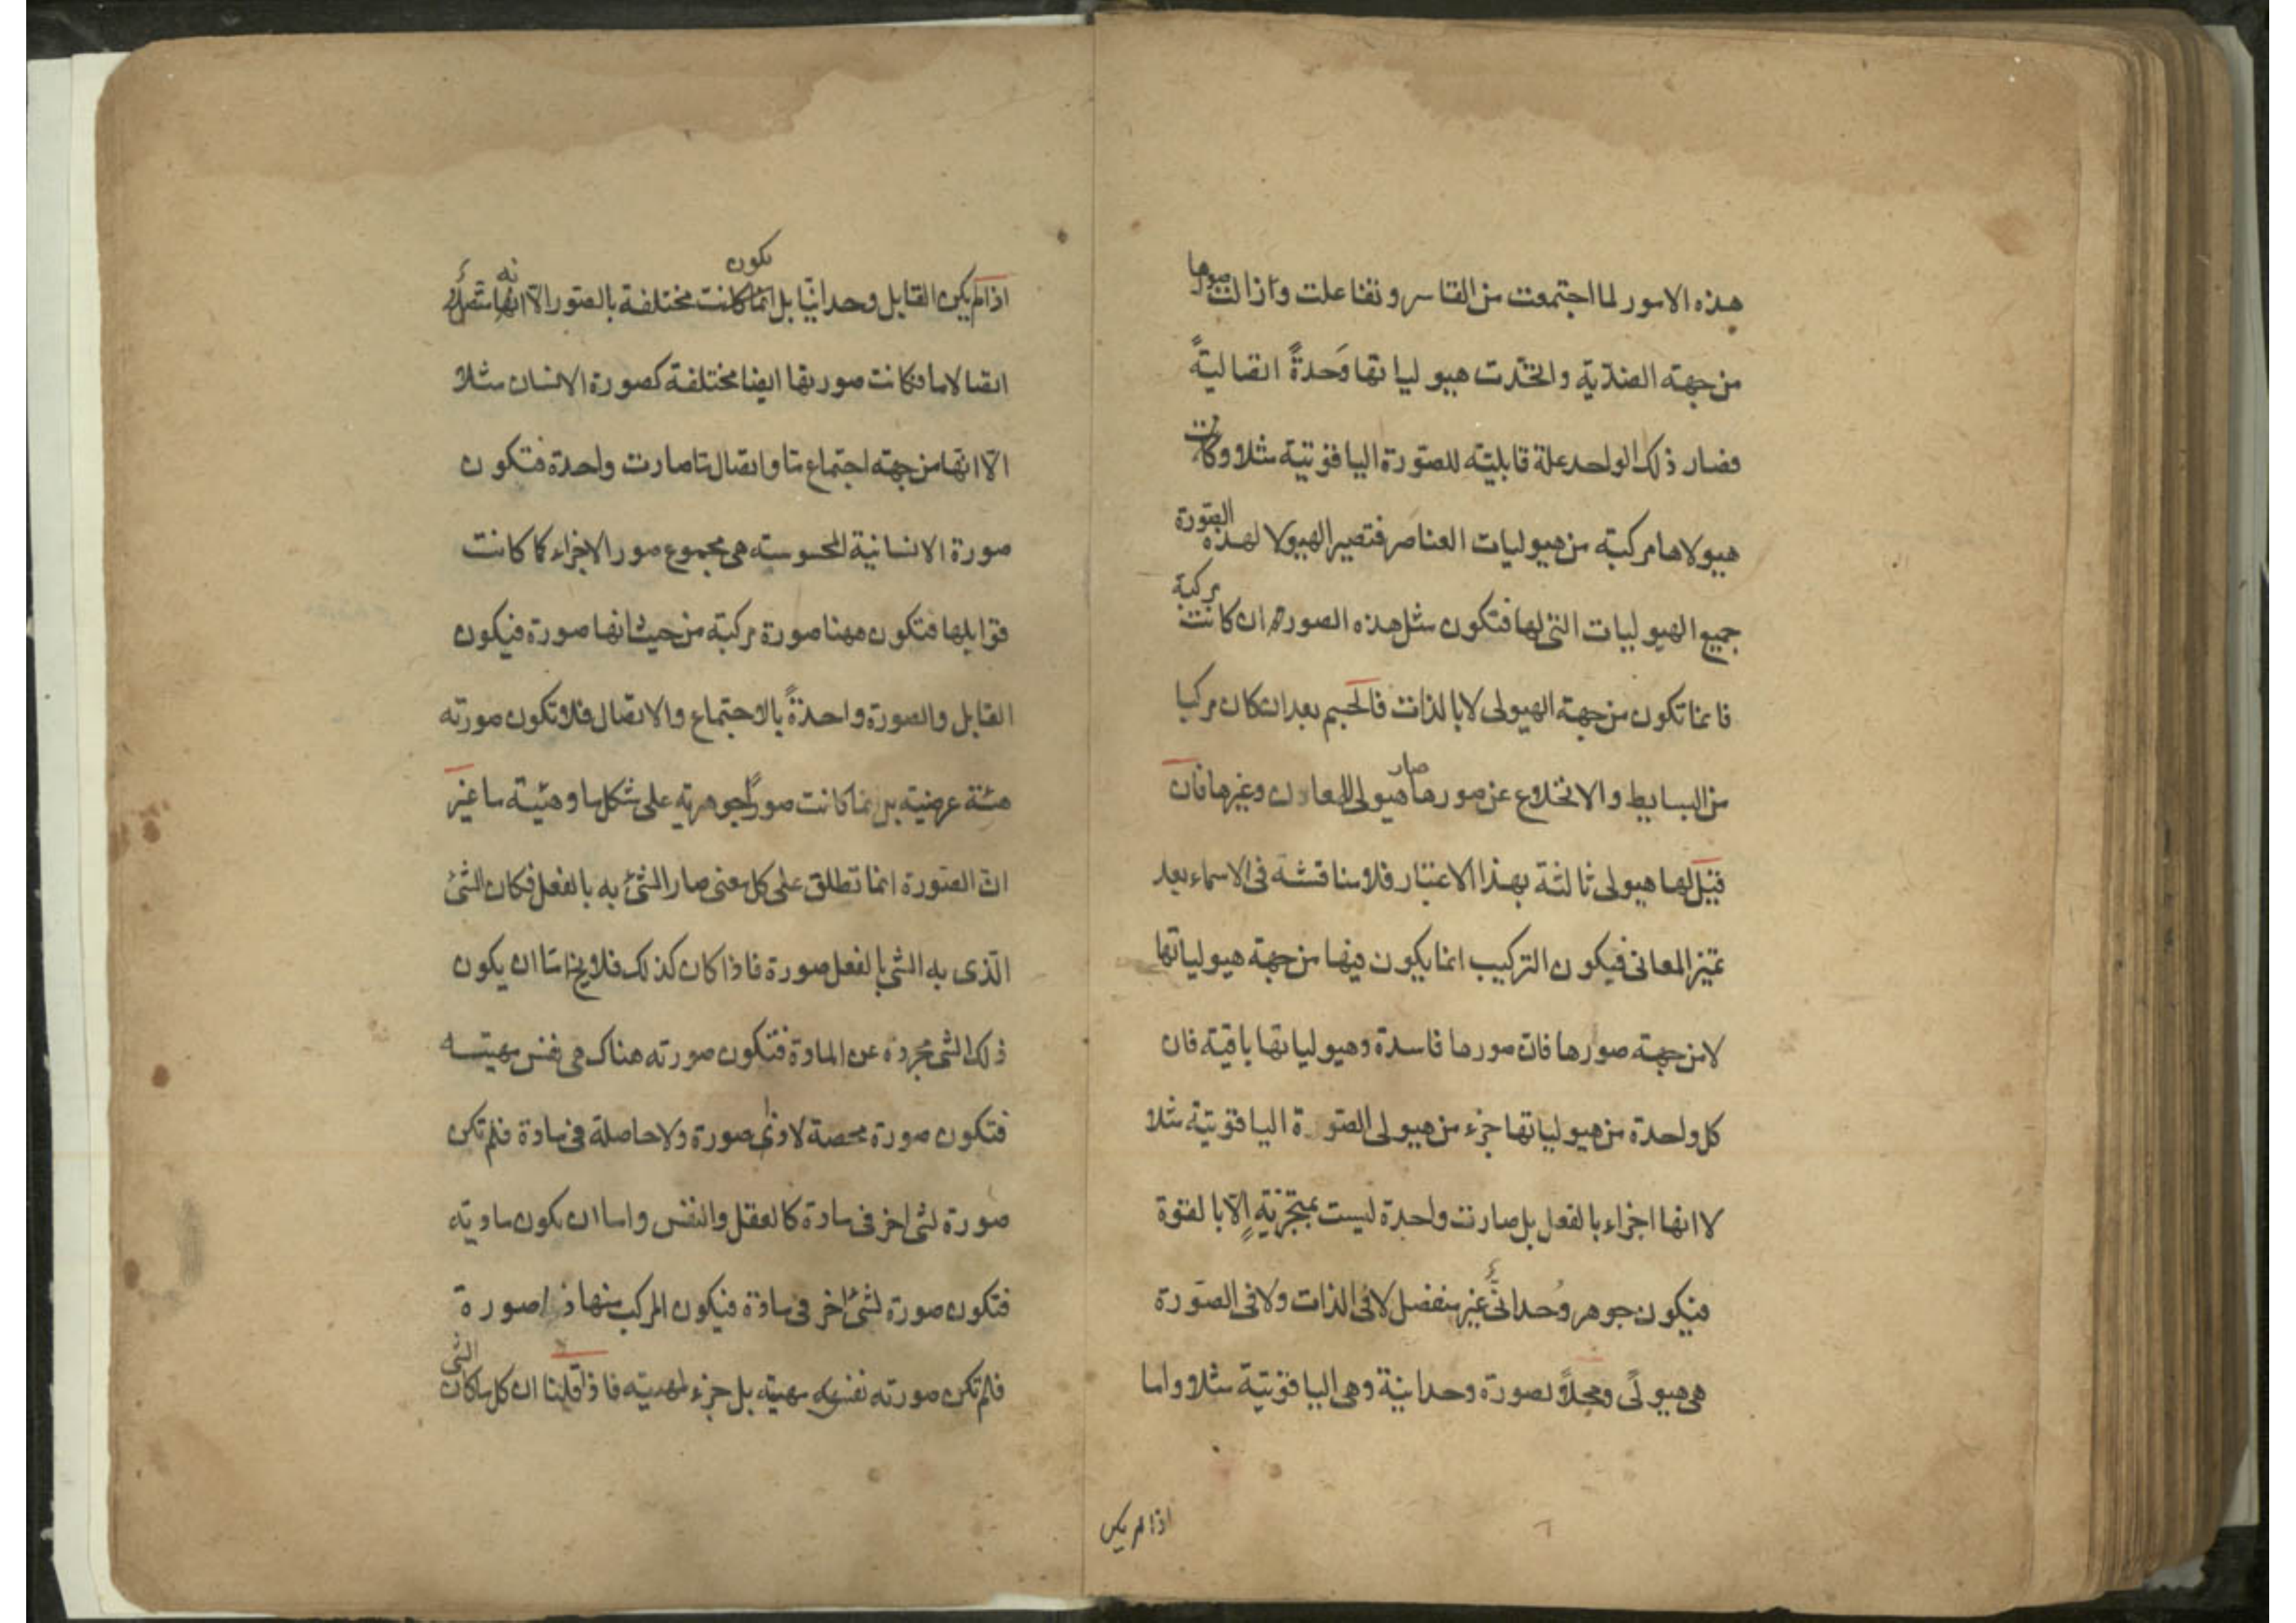 هذه الامور لما اجتمعت من القاسر وتفاعلت وازالت صورها
من جهته الضدّية واتّحدت هيولياتها وَحدةً اتصاليةً
فصار ذلك الواحد علة قابليّته للصّورة الياقوتية مثلا وكانت
هيولاها مركبته من هيوليات العناصر فتصير الهيولا لهذه الصّورة
جميع الهيوليات التى لها فتكون مثل هذه الصورة ان كانت مركبة
فانما تكون من جهته الهيولى لا بالذات فالجسم بعد ان كان مركبا
من البسايط والانخلاع عن صورها صار هيولى للمعادن وغيرها فان
قيل لها هيولى ثالثة بهذا الاعتبار فلا مناقشة فى الاسماء بعد
تميّز المعانى فيكون التركيب انما يكون فيها من جهة هيولياتها
لا من جهته صورها فان صورها فاسدة وهيولياتها باقية فان
كل واحدة من هيولياتها جزء من هيولى الصّورة الياقوتية مثلا
لا انها اجزاء بالفعل بل صارت واحدة ليست بمتجزيةٍ الّا بالقوة
فيكون جوهر وُحدانىّ غير منفصل لا فى الذات ولا فى الصّورة
هى هيولًى ومحلاً لصورة وحدانية وهى الياقوتية مثلا واما
اذا لم يكن
اذا لم يكن القابل وحدانيّا بل انما كانت تكون مختلفة بالصّور الّا انها متصلة
اتصالا ما فكانت صورتها ايضا مختلفة كصورة الانسان مثلا
الّا انها من جهته اجتماع مّا واتصال مّا صارت واحدة فتكون
صورة الانسانية المحسوسته هى مجموع صور الاجزاء كما كانت
قوابلها فتكون ههنا صورة مركبته من حيث انها صورة فيكون
القابل والصورة واحدةً بالاجتماع والاتصال فلا تكون صورته
هيئة عرضيته بل انما كانت صورًا جوهريّه على شكل ما وهيئة ما غير
انّ الصّورة انما تطلق على كل معنى صار الشئ به بالفعل فكان الشئ
الّذى به الشئ بالفعل صورة فاذا كان كذلك فلا يخ امّا ان يكون
ذلك الشئ مجردة عن المادة فتكون صورته هناك هى نفس مهيته
فتكون صورة محضة لا ذى صورة ولا حاصلة فى مادة فلم تكن
صورة لشئ اخر فى مادة كالعقل والنفس واما ان يكون ماديّه
فتكون صورة لشئ اخر فى مادة فيكون المركب منها ذا صورة
فلم تكن صورته نفس مهيته بل جزء لمهيته فاذا قلنا ان كل ما كان الشئ